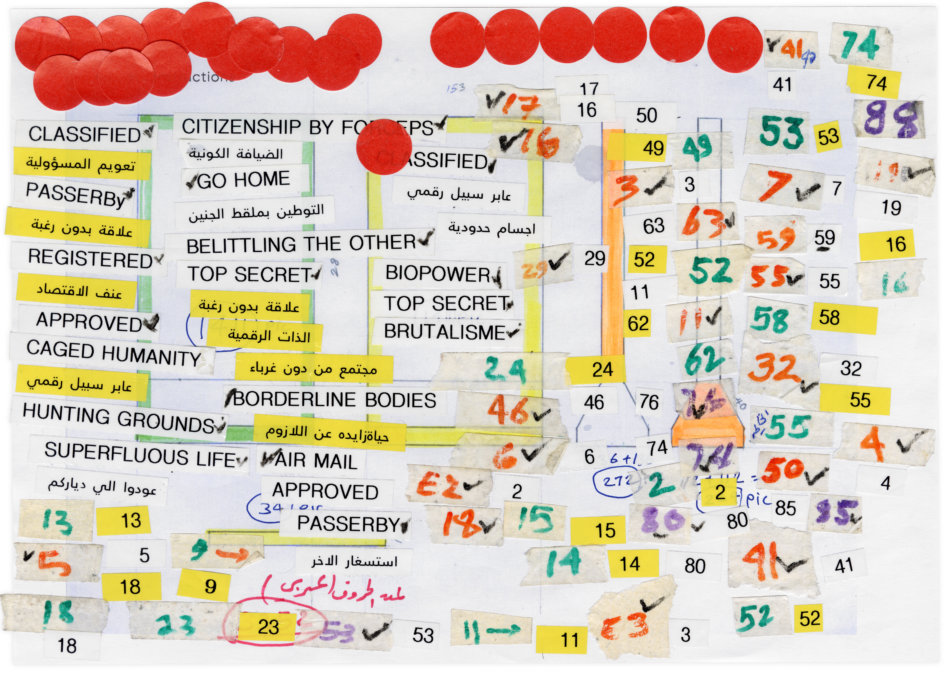 41 74
ctions
41 74
153 17 17
16 50
CLASSIFIED CITIZENSHIP BY FORCEPS 16 53 53 88
تعويم المسؤولية الضيافة الكونية ASSIFIED 49 49
PASSERBy GO HOME عابر سبيل رقمي 3 3 7 7 19
علاقة بدون رغبة التوطين بملقط الجنين اجسام حدودية 63 63 59 59 16
REGISTERED BELITTLING THE OTHER 29 29 52 52 55 55 16
TOP SECRET BIOPOWER
عنف الاقتصاد علاقة بدون رغبة TOP SECRET 11 11
APPROVED الذات الرقمية BRUTALISME 62 58 58
CAGED HUMANITY مجتمع من دون غرباء 24 24 62 32 32
عابر سبيل رقمي BORDERLINE BODIES 46 46 76 76 55
HUNTING GROUNDS حياةزايده عن اللازوم 55
SUPERFLUOUS LIFE AIR MAIL 6 6 6+1 74 74 50 4
عودوا الي دياركم APPROVED E2 2 272 2 2 pic 4
13 13 34 PASSERBY 18 15 15 80 80 85 85
5 5 9 استسغار الاخر 14 14 80 41 41
18 9
18 23 23 53 53 11 11 E3 3 52 52
18